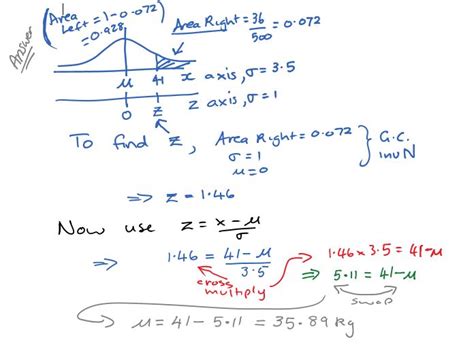 Answer
(Area Left = 1-0.072 = 0.928)
Area Right = 36/500 = 0.072
μ 41 x axis, σ = 3.5
0 z z axis, σ = 1
To find z, Area Right = 0.072
σ = 1
μ = 0
} G.C. invN
⇒ z = 1.46
Now use z = x-μ/σ
⇒ 1.46 = 41-μ/3.5
cross multiply
1.46 x 3.5 = 41-μ
⇒ 5.11 = 41-μ
swap
μ = 41 - 5.11 = 35.89 kg